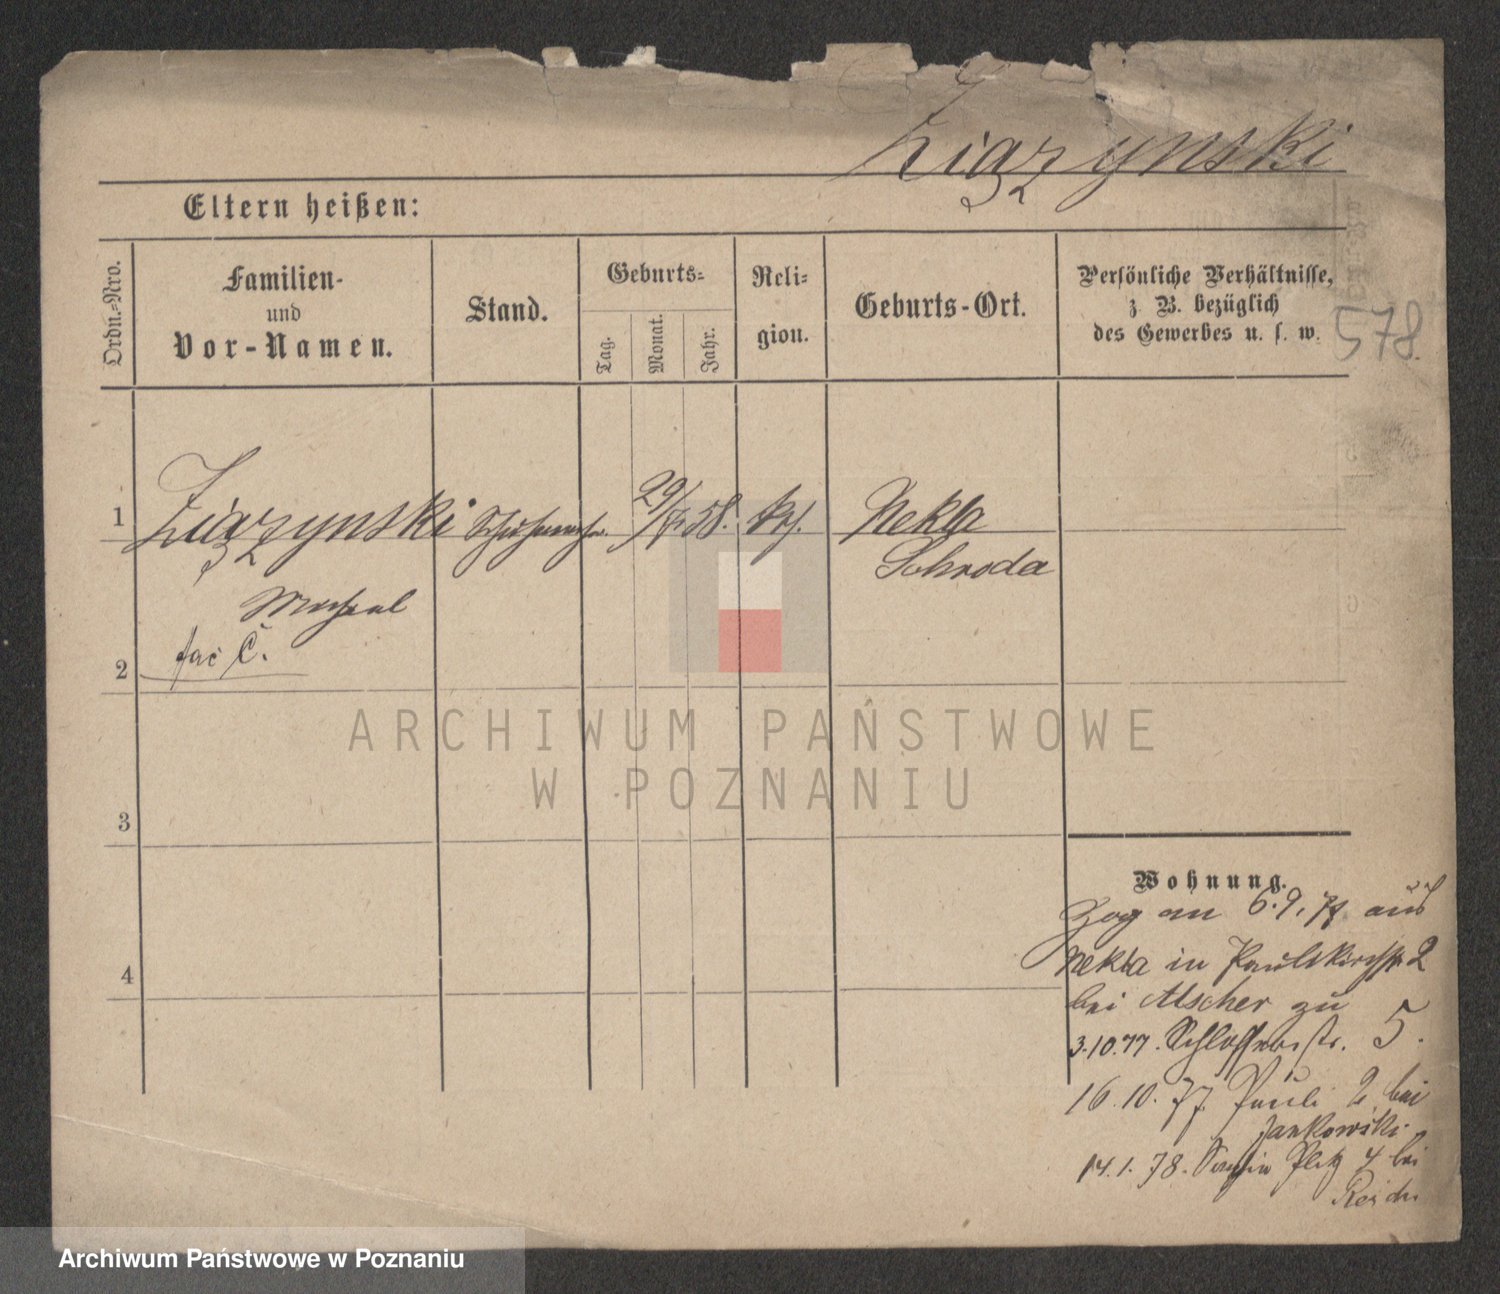 Ziązynski
Eltern heißen:
Ordn.=Nro.
Familien-
und
Vor-Namen.
Stand.
Geburts=
Tag.
Monat.
Jahr.
Reli=
gion.
Geburts-Ort.
Persönliche Verhältnisse,
z. B. bezüglich
des Gewerbes u. s. w.
578.
1
Ziązynski
58.
Nekla
Schroda
Michael
2
3
4
Wohnung.
Zog am 6.9.77 aus
Nekla in Paulikirchstr 2
bei Alscher zu
3.10.77. Schlosserstr. 5.
16.10.77 Pauli 2 bei
Jankowski
14.1.78. Sapieha Platz 4 bei
ARCHIWUM PAŃSTWOWE
W POZNANIU
Archiwum Państwowe w Poznaniu